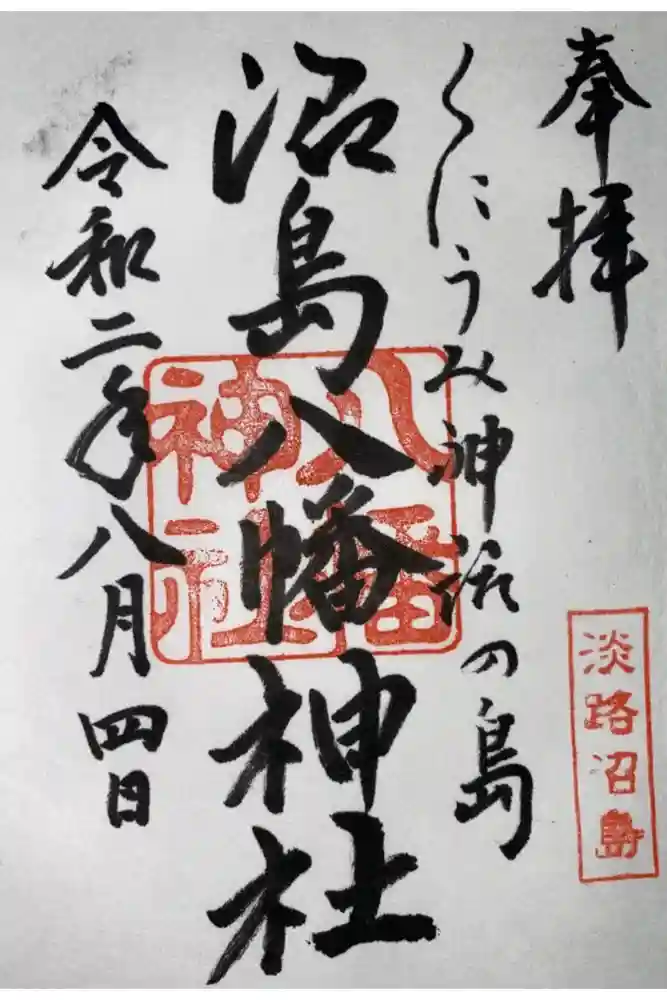 奉拝
くにうみ神話の島
沼島八幡神社
令和二年八月四日
八幡
神社
淡路沼島